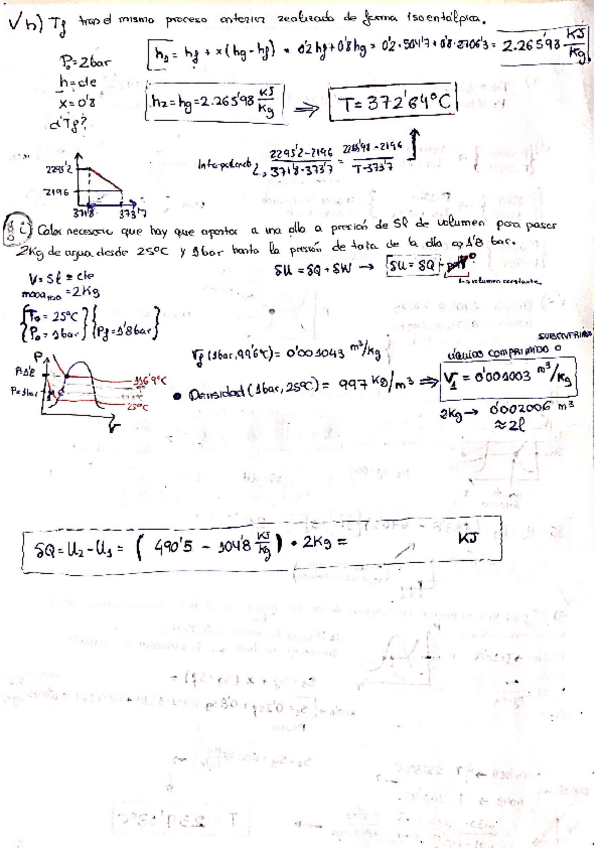 √ h) Tf tras el mismo proceso anterior realizado de forma isoentálpica.
P₀=2bar
h=cte
x=0'8
d Tf?
h₁ = hf + x(hg-hf) = 0'2hf+0'8hg = 0'2·504'7+0'8·2706'3 = 2.265'98 KJ/Kg
h₂=hg=2.265'98 KJ/Kg ⇒ T=372'64°C
Interpolando
2295'2-2196 / 371'8-373'7 = 2265'98-2196 / T-373'7
2295'2
2196
371'8 373'7
i) Calor necesario que hay que aportar a una olla a presión de 5l de volumen para pasar
2Kg de agua desde 25°C y 1bar hasta la presión de tara de la olla 1'8 bar.
V=5l=cte
masa =2Kg
T₀=25°C
P₀=1bar
Pf=1'8bar
δU=δQ+δW → δU=δQ
volumen constante
P
P=1'8
P=1bar
116'9°C
25°C
V
Vf (1bar, 99'6°C) = 0'001043 m³/Kg
• Densidad (1bar, 25°C) = 997 Kg/m³ ⇒
LÍQUIDO COMPRIMIDO O
SUBENFRIADO
V₁ = 0'001003 m³/Kg
2Kg → 0'002006 m³
≈2l
δQ=U₂-U₁ = (490'5 - 104'8 KJ/Kg) • 2Kg = KJ